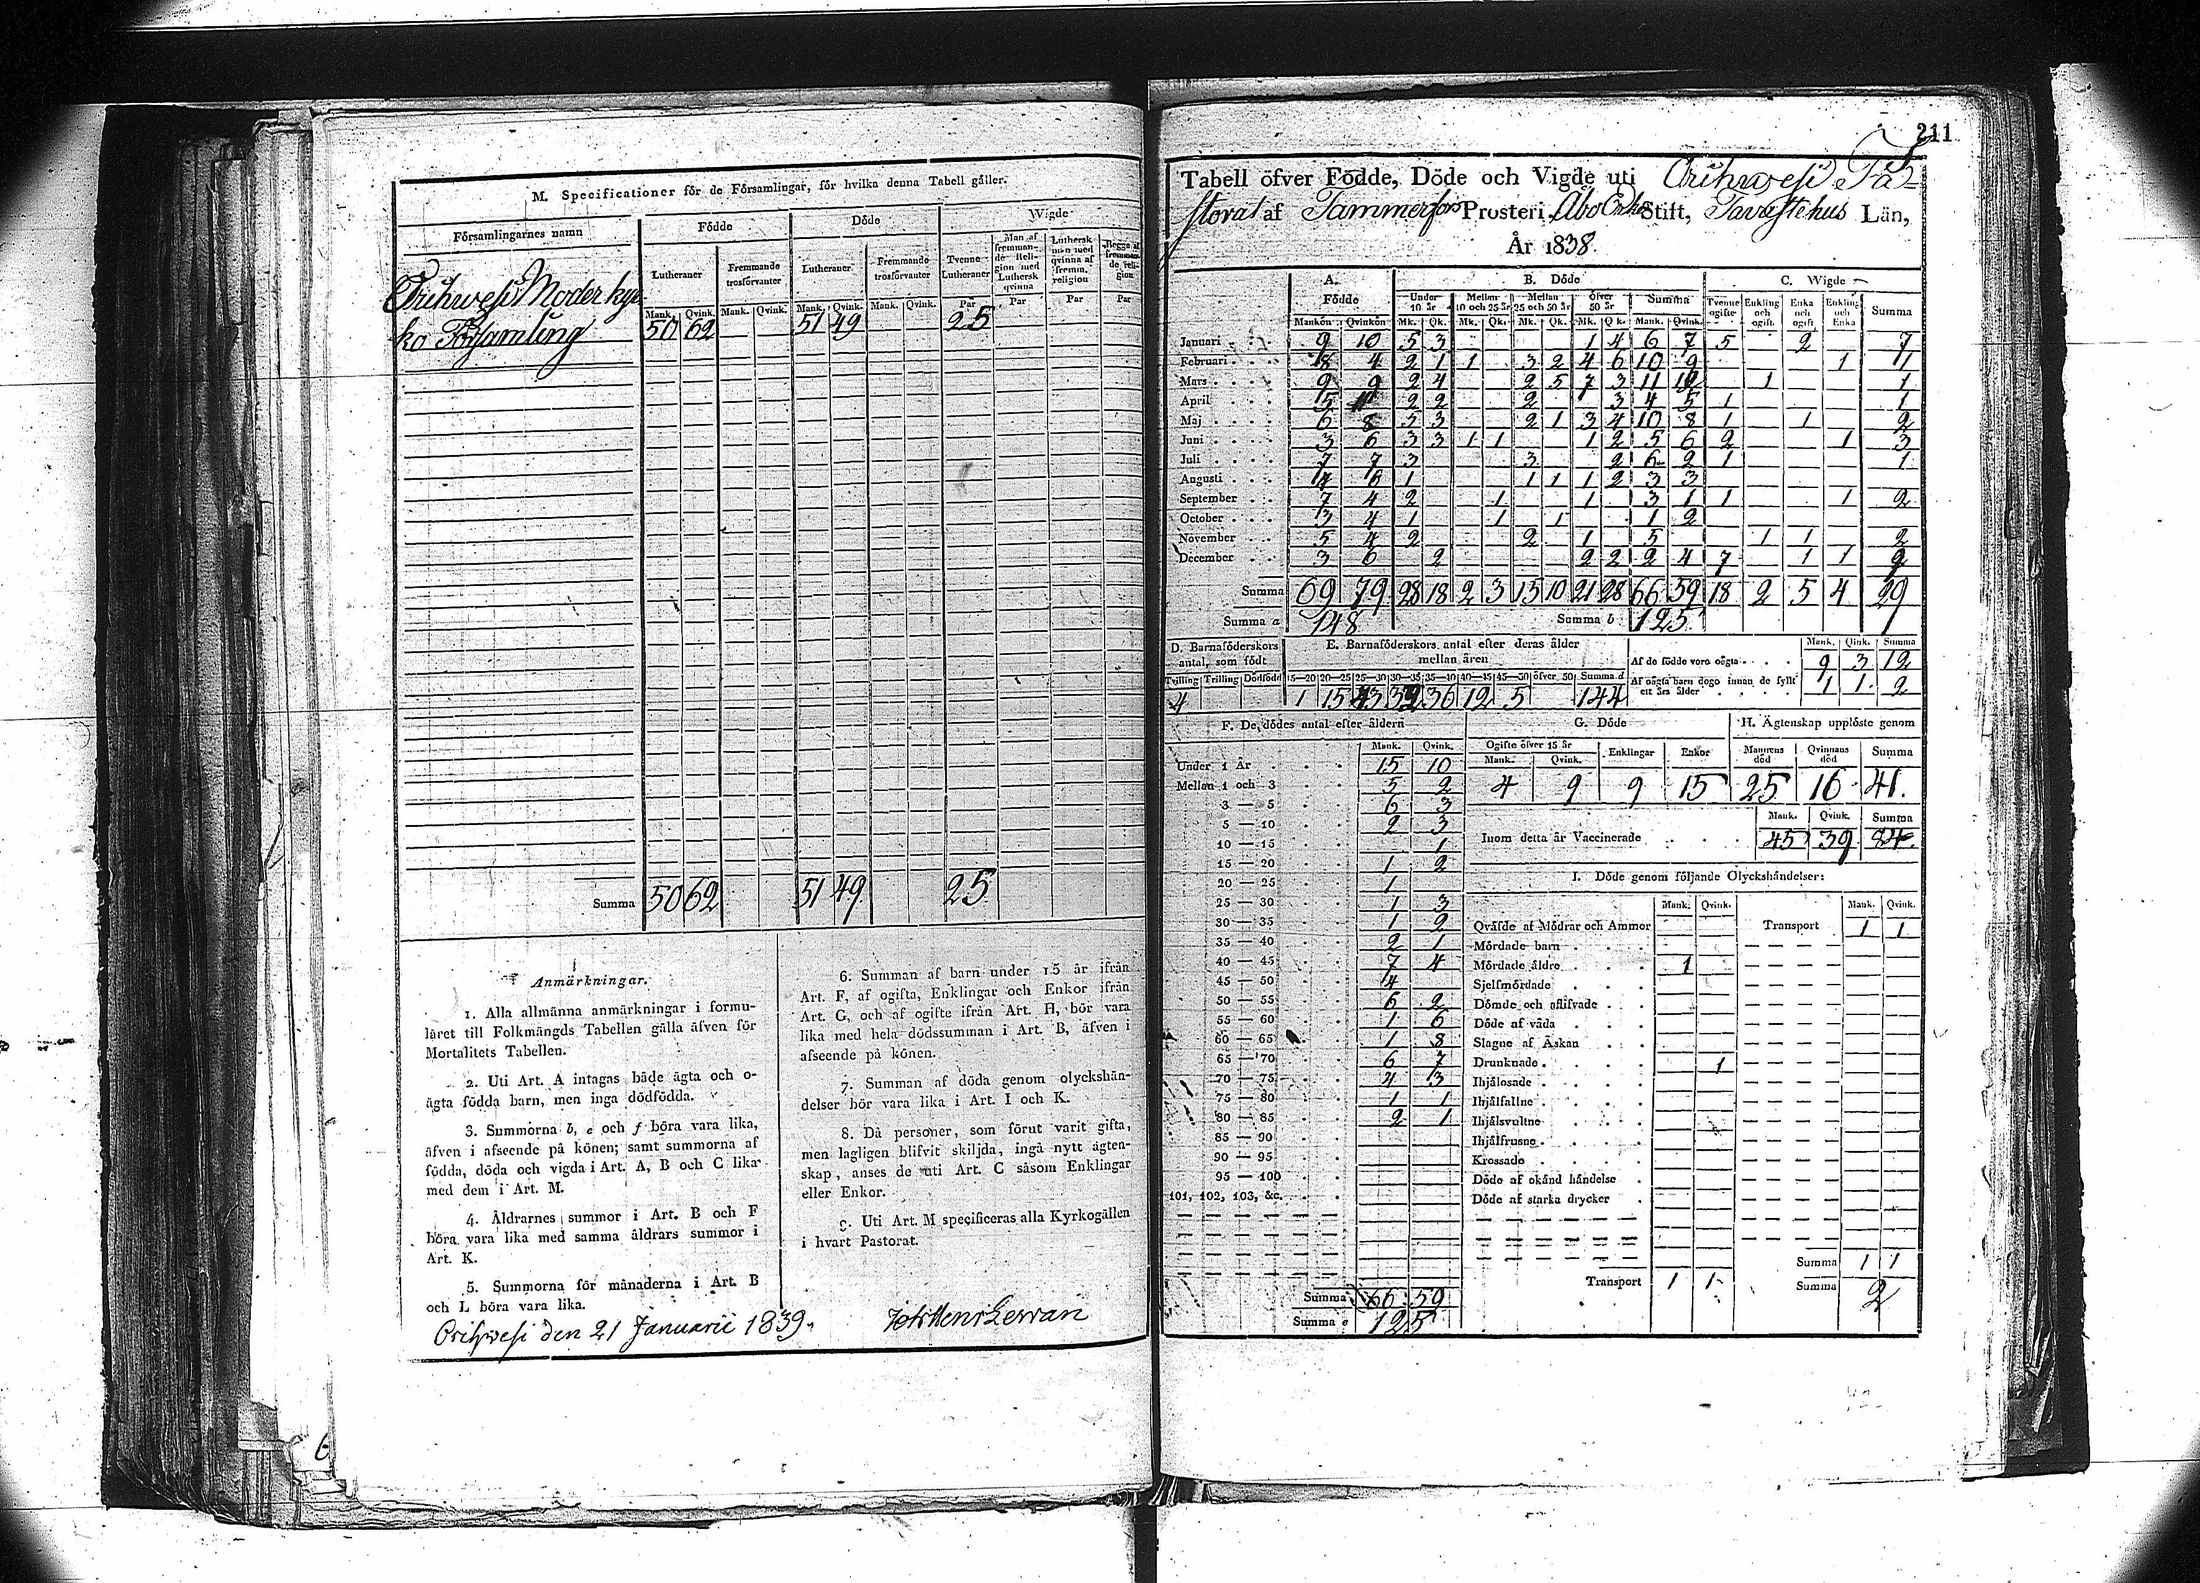 M. Specificationer för de Församlingar, för hvilka denna Tabell gäller.
Församlingarnes namn
Födde
Döde
Wigde
Lutheraner
Fremmande trosförvanter
Lutheraner
Fremmande trosförvanter
Tvenne Lutheraner
Man af fremmande Religion med Luthersk qvinna
Luthersk man med qvinna af fremm. religion
Begge af fremmande religion
Mank. Qvink. Mank. Qvink. Mank. Qvink. Mank. Qvink. Par Par Par Par
Orihwesi Moderkyr
ko Församling 50 62 51 49 25
Summa 50 62 51 49 25
Anmärkningar.
1. Alla allmänna anmärkningar i formu-
läret till Folkmängds Tabellen gälla äfven för
Mortalitets Tabellen.
2. Uti Art. A intagas både ägta och o-
ägta födda barn, men inga dödfödda.
3. Summorna b, e och f böra vara lika,
äfven i afseende på könen; samt summorna af
födda, döda och vigda i Art. A, B och C lika
med dem i Art. M.
4. Åldrarnes summor i Art. B och F
böra vara lika med samma åldrars summor i
Art. K.
5. Summorna för månaderna i Art. B
och L böra vara lika.
6. Summan af barn under 15 år ifrån
Art. F, af ogifta, Enklingar och Enkor ifrån
Art. G, och af ogifte ifrån Art. H, bör vara
lika med hela dödssumman i Art. B, äfven i
afseende på könen.
7. Summan af döda genom olyckshän-
delser bör vara lika i Art. I och K.
8. Då personer, som förut varit gifta,
men lagligen blifvit skiljda, ingå nytt ägten-
skap, anses de uti Art. C såsom Enklingar
eller Enkor.
9. Uti Art. M specificeras alla Kyrkogällen
i hvart Pastorat.
Orihwesi den 21 Januarii 1839.
211
Tabell öfver Födde, Döde och Vigde uti Orihwesi Pa-
storat af Tammerfors Prosteri, Åbo Stift, Tavastehus Län,
År 1838.
A. Födde
B. Döde
C. Wigde
Under 10 år
Mellan 10 och 25 år
Mellan 25 och 50 år
Öfver 50 år
Summa
Tvenne ogifte
Enkling och ogift
Enka och ogift
Enkling och Enka
Summa
Mankön Qvinkön Mk. Qk. Mk. Qk. Mk. Qk. Mk. Qk. Mank. Qvink.
Januari 9 10 5 3 1 4 6 7 5 2 7
Februari 18 4 2 1 1 3 2 4 6 10 9 1 11
Mars 9 9 2 4 2 5 7 3 11 12 1 1
April 5 2 2 2 3 4 5 1 1
Maj 6 8 5 3 2 1 3 4 10 8 1 1 2
Juni 3 6 3 3 1 1 1 2 5 6 2 1 3
Juli 7 7 3 3 2 6 2 1 1
Augusti 6 1 1 1 1 2 3 3
September 7 4 2 1 1 3 1 1 1 2
October 3 4 1 1 1 1 2
November 5 4 2 2 1 5 1 1 2
December 3 6 2 2 2 2 4 7 1 1 9
Summa 69 79 28 18 2 3 15 10 21 28 66 59 18 2 5 4 29
Summa a 148 Summa b 125
D. Barnaföderskors antal, som födt
Tvilling Trilling Dödfödd
4
E. Barnaföderskors antal efter deras ålder mellan åren
15—20 20—25 25—30 30—35 35—40 40—45 45—50 öfver 50 Summa d
1 15 43 32 36 12 5 144
Mank. Qink. Summa
Af de födde voro oägta 9 3 12
Af oägta barn dogo innan de fyllt ett års ålder 1 1 2
F. De dödes antal efter åldern
Mank. Qvink.
Under 1 År 15 10
Mellan 1 och 3 5 2
3 — 5 6 3
5 — 10 2 3
10 — 15 1
15 — 20 1 2
20 — 25 1
25 — 30 1 3
30 — 35 1 2
35 — 40 2 1
40 — 45 7 4
45 — 50 4
50 — 55 6 2
55 — 60 1 6
60 — 65 1 8
65 — 70 6 7
70 — 75 4 3
75 — 80 1 1
80 — 85 2 1
85 — 90
90 — 95
95 — 100
101, 102, 103, &c.
Summa 66 59
Summa e 125
G. Döde
Ogifte öfver 15 år
Enklingar
Enkor
Mank. Qvink.
4 9 9 15
H. Ägtenskap upplöste genom
Mannens död
Qvinnans död
Summa
25 16 41.
Mank. Qvink. Summa
Inom detta år Vaccinerade 45 39 84.
I. Döde genom följande Olyckshändelser:
Mank. Qvink. Mank. Qvink.
Qväfde af Mödrar och Ammor
Transport 1 1
Mördade barn
Mördade äldre 1
Sjelfmördade
Dömde och aflifvade
Döde af våda
Slagne af Åskan
Drunknade 1
Ihjälosade
Ihjälfallne
Ihjälsvultne
Ihjälfrusne
Krossade
Döde af okänd händelse
Döde af starka drycker
Summa 1 1
Transport 1 1
Summa 2